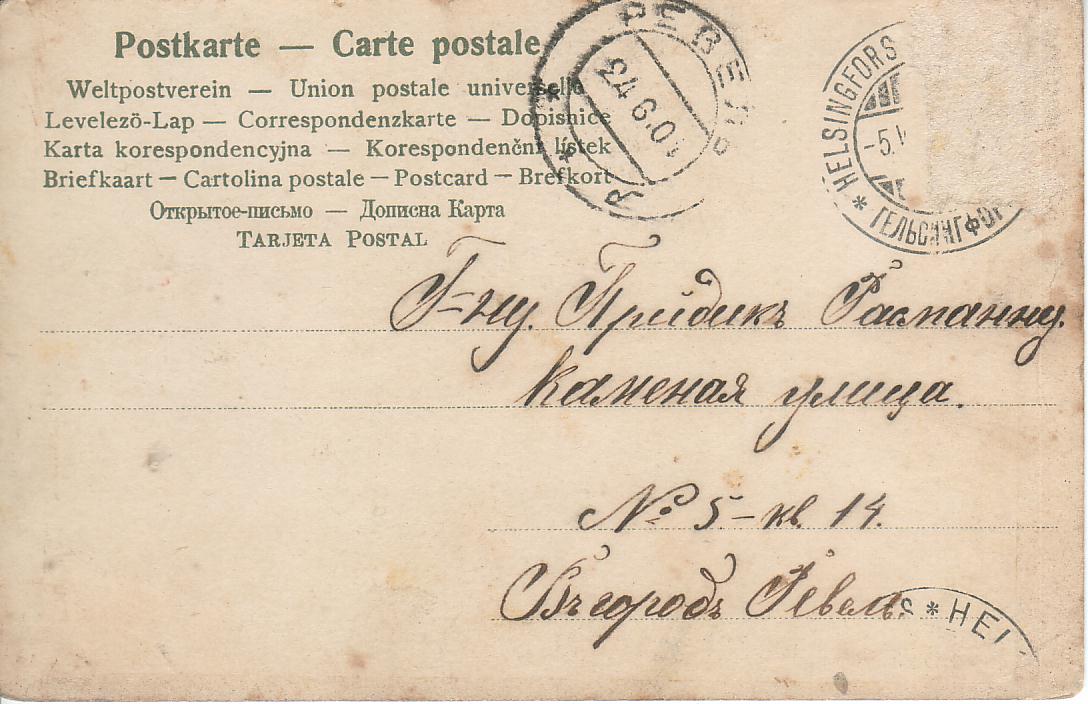 Postkarte — Carte postale
Weltpostverein — Union postale universelle
Levelező-Lap — Correspondenzkarte — Dopisnice
Karta korespondencyjna — Korespondenční lístek
Briefkaart — Cartolina postale — Postcard — Brefkort
Открытое-письмо — Дописна Карта
TARJETA POSTAL
РЕВЕЛЬ
24 6.01
HELSINGFORS
-5.
* ГЕЛЬСИНГФОР
Г-ну. Придикъ
Каменая улица.
№ 5-кв. 14.
Въ городъ Ревель.
S * HEL